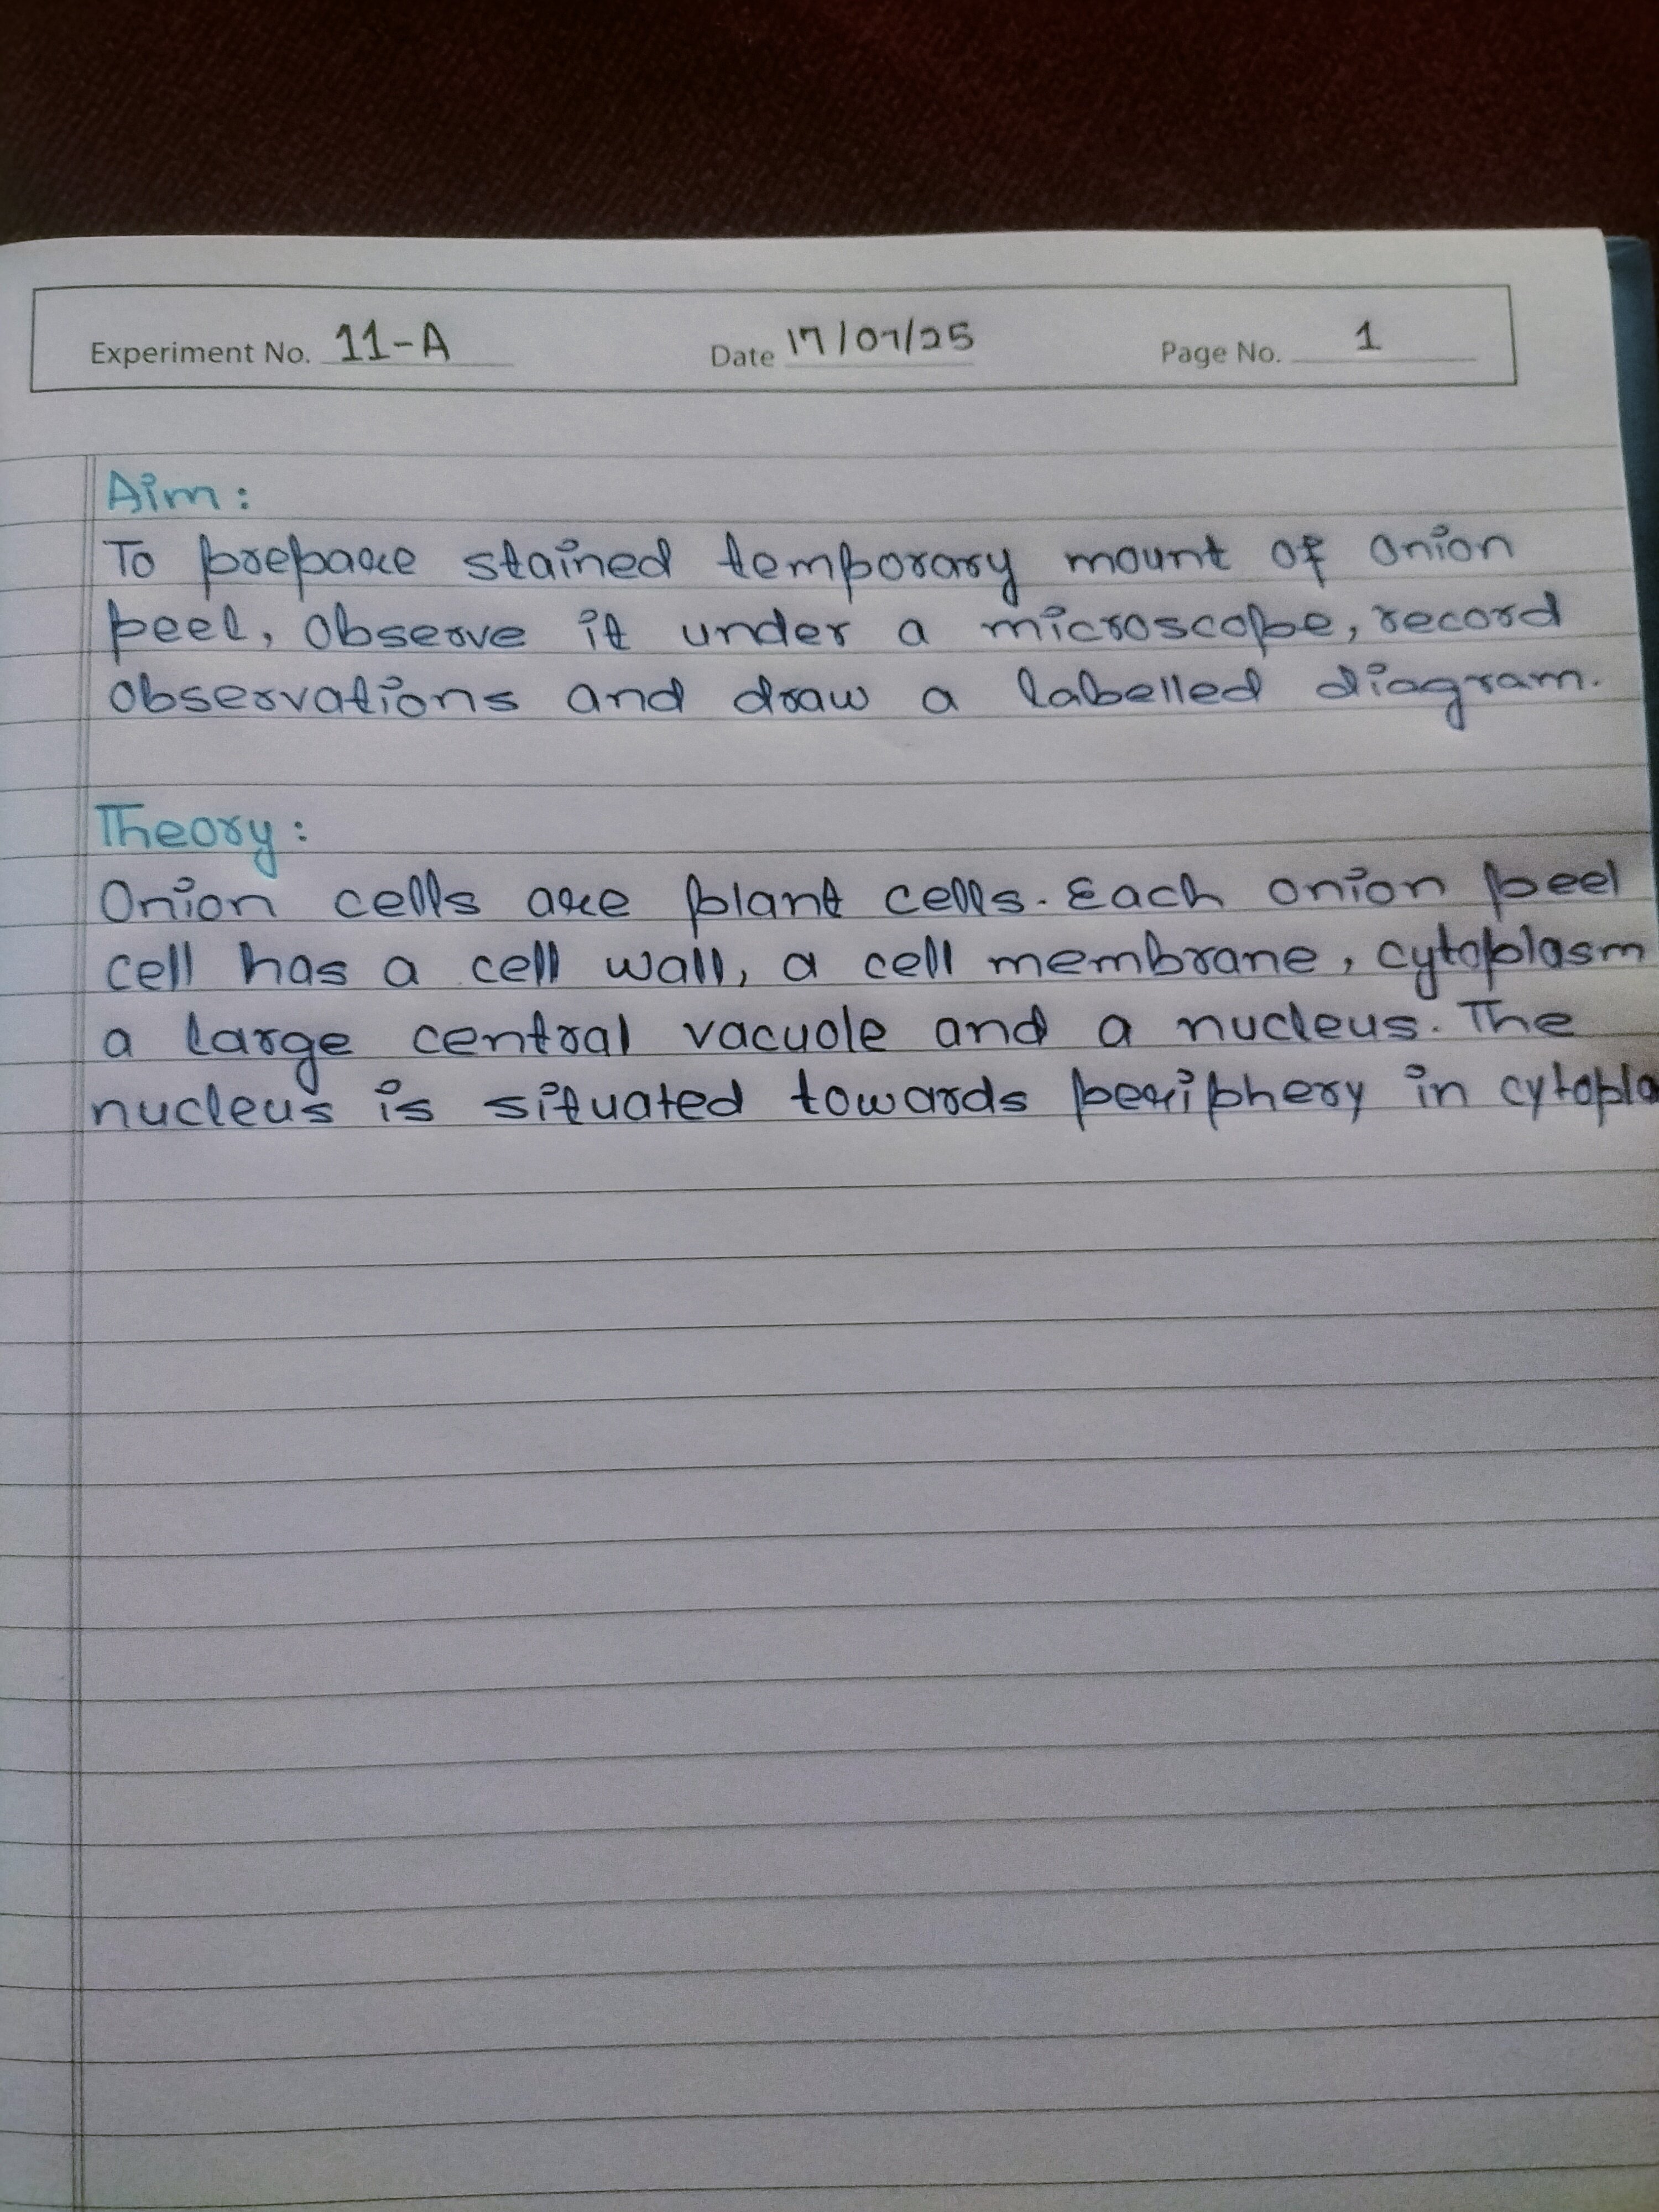 Experiment No. 11-A Date 17/07/25 Page No. 1
Aim:
To prepare stained temporary mount of onion
peel, observe it under a microscope, record
observations and draw a labelled diagram.
Theory:
Onion cells are plant cells. Each onion peel
cell has a cell wall, a cell membrane, cytoplasm
a large central vacuole and a nucleus. The
nucleus is situated towards periphery in cytopla